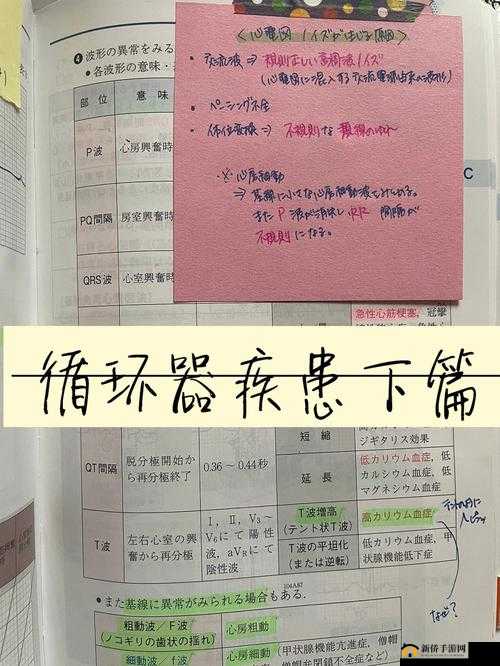 ❹波形の異常をみる
●各波形の意味・
部位 意味
P波 心房興奮時
PQ間隔 房室興奮時
QRS波 心室興奮時
交流波⇒規則正しい高周波ノイズ
・ペーシング不全
・体位変換⇒不規則な
※心房細動
⇒基線に小さな心房細動波
またP波が消失しRR間隔が
不規則になる。
C
急性心筋梗塞，冠攣
循环器疾患下篇
短縮
ジギタリス効果
QT間隔
脱分極開始か
ら再分極終了
0.36～0.44秒
延長
低カリウム血症，低
カルシウム血症，低
マグネシウム血症
T波
左右心室の興
奮から再分極
I，II，V₃～
V₆にて陽性
波，aVRにて
陰性波
T波増高
（テント状T波）
高カリウム血症
T波の平坦化
（または逆転）
低カリウム血症，甲
状腺機能低下症
なぜ？
104A87
●また基線に異常がみられる場合もある．
粗動波／F波
（ノコギリの歯状の揺れ）
心房粗動
細動波／f波
心房細動（甲状腺機能亢進症，僧帽
弁閉鎖不全症など）
新侨手游网